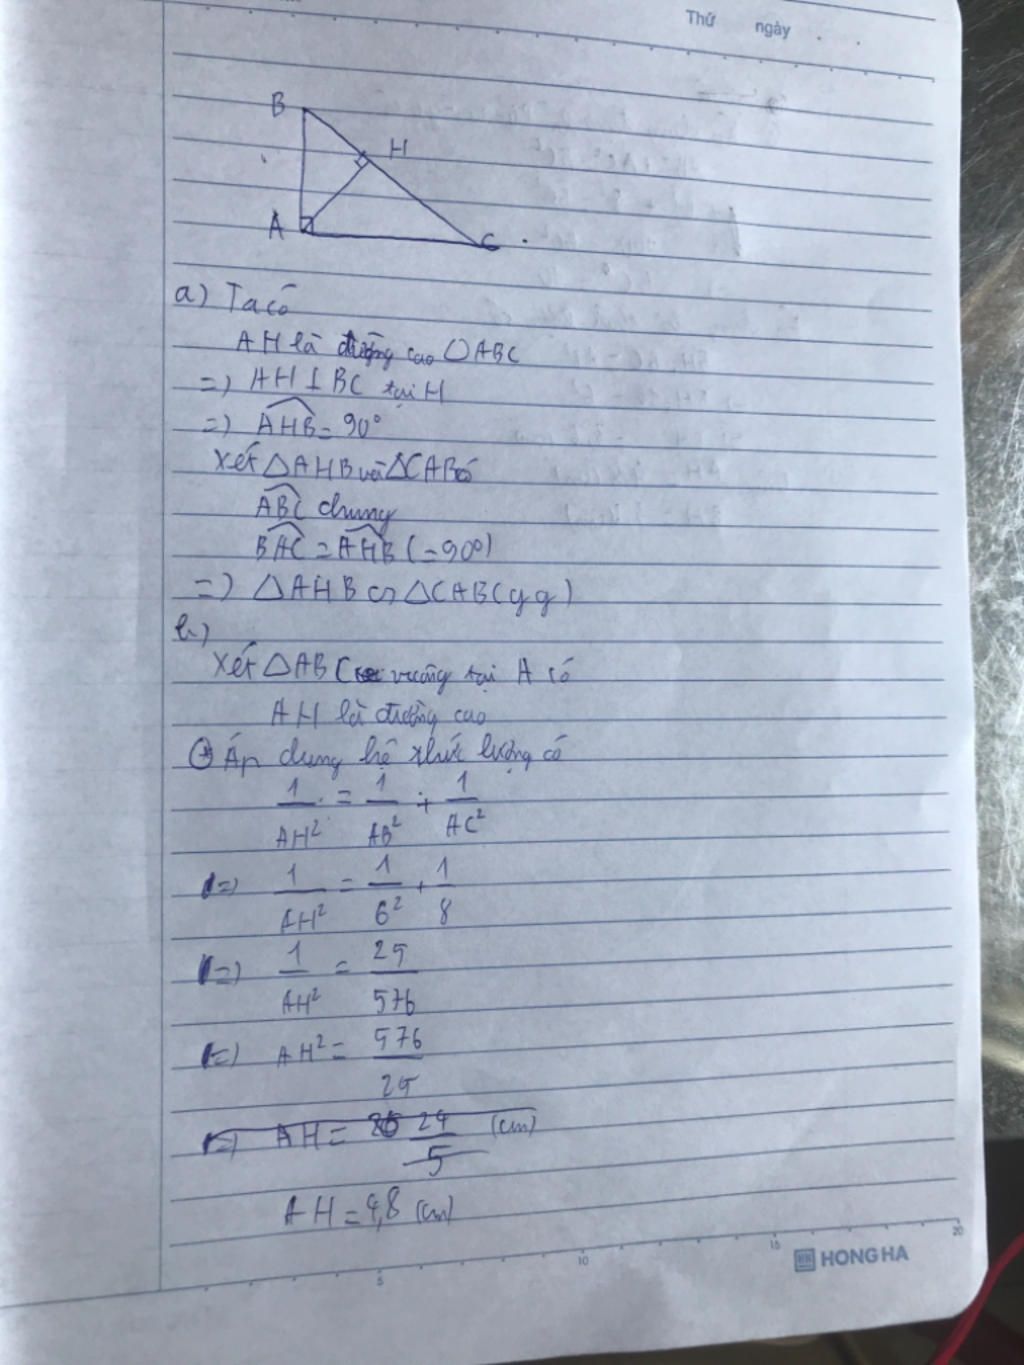 Thứ ngày
B
H
A
C
a) Ta có
AH là đường cao △ABC
=) AH ⊥ BC tại H
=) AHB = 90°
Xét △AHB và △CAB có
ABC chung
BAC = AHB (= 90°)
=) △AHB ∽ △CAB (g g)
b)
Xét △ABC vuông tại A có
AH là đường cao
Áp dung hệ thức lượng có
1/AH² = 1/AB² + 1/AC²
(=) 1/AH² = 1/6² + 1/8
(=) 1/AH² = 25/576
(=) AH² = 576/25
(=) AH = 24/5 (cm)
AH = 4,8 (cm)
5 10 15 20
HONG HA